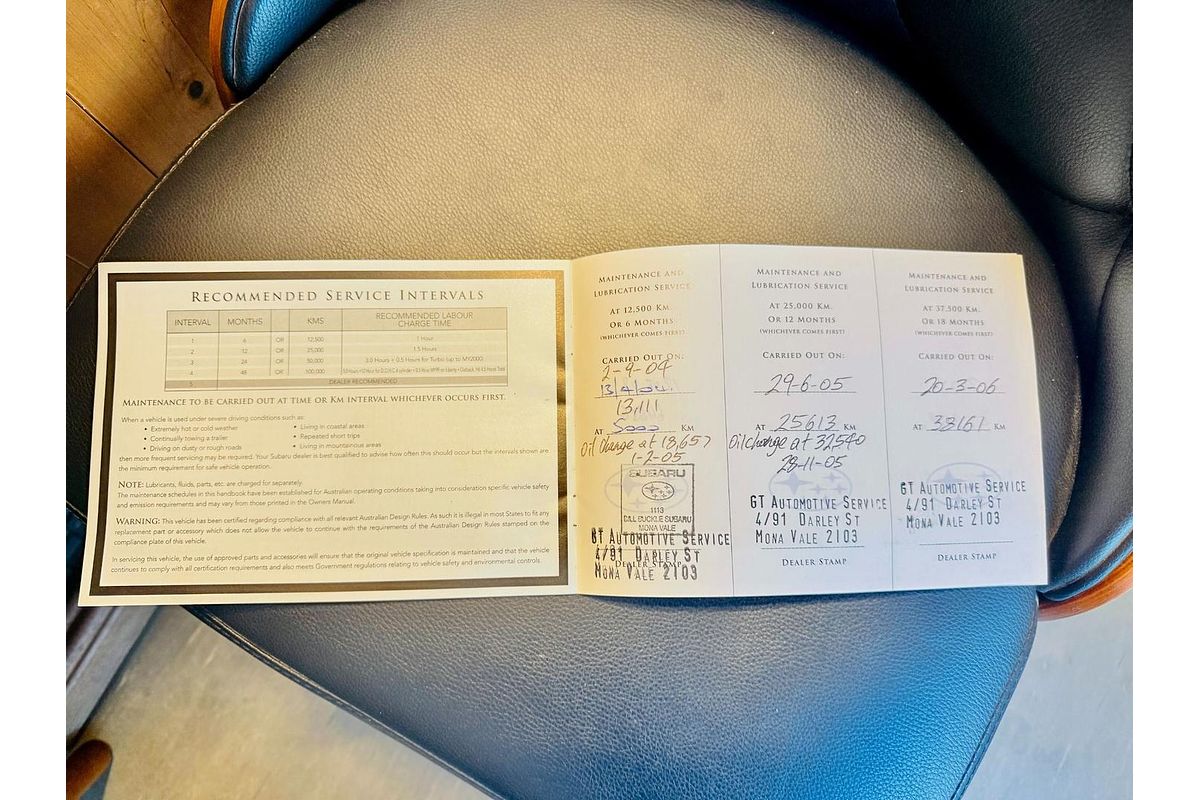 RECOMMENDED SERVICE INTERVALS
INTERVAL MONTHS KMS RECOMMENDED LABOUR CHARGE TIME
1 6 OR 12,500 1 Hour
2 12 OR 25,000 1.5 Hours
3 24 OR 50,000 3.0 Hours + 0.5 Hours for Turbo (up to MY2000)
4 48 OR 100,000
5 DEALER RECOMMENDED
MAINTENANCE TO BE CARRIED OUT AT TIME OR KM INTERVAL WHICHEVER OCCURS FIRST.
When a vehicle is used under severe driving conditions such as:
• Extremely hot or cold weather
• Continually towing a trailer
• Driving on dusty or rough roads
• Living in coastal areas
• Repeated short trips
• Living in mountainous areas
then more frequent servicing may be required. Your Subaru dealer is best qualified to advise how often this should occur but the intervals shown are
the minimum requirement for safe vehicle operation.
NOTE: Lubricants, fluids, parts, etc. are charged for separately.
The maintenance schedules in this handbook have been established for Australian operating conditions taking into consideration specific vehicle safety
and emission requirements and may vary from those printed in the Owners Manual.
WARNING: This vehicle has been certified regarding compliance with all relevant Australian Design Rules. As such it is illegal in most States to fit any
replacement part or accessory which does not allow the vehicle to continue with the requirements of the Australian Design Rules stamped on the
compliance plate of this vehicle.
In servicing this vehicle, the use of approved parts and accessories will ensure that the original vehicle specification is maintained and that the vehicle
continues to comply with all certification requirements and also meets Government regulations relating to vehicle safety and environmental controls.
MAINTENANCE AND
LUBRICATION SERVICE
AT 12,500 KM.
OR 6 MONTHS
(WHICHEVER COMES FIRST)
CARRIED OUT ON:
2-9-04
13/4/04.
13,111
AT 5000 KM
Oil Change at 18,657
1-2-05
SUBARU
1113
BILL BUCKLE SUBARU
MONA VALE
GT AUTOMOTIVE SERVICE
4/91 DARLEY ST
DEALER STAMP
MONA VALE 2103
MAINTENANCE AND
LUBRICATION SERVICE
AT 25,000 KM.
OR 12 MONTHS
(WHICHEVER COMES FIRST)
CARRIED OUT ON:
29-6-05
AT 25613 KM
Oil change at 32540
28-11-05
GT AUTOMOTIVE SERVICE
4/91 DARLEY ST
MONA VALE 2103
DEALER STAMP
MAINTENANCE AND
LUBRICATION SERVICE
AT 37,500 KM.
OR 18 MONTHS
(WHICHEVER COMES FIRST)
CARRIED OUT ON:
20-3-06
AT 38161 KM
GT AUTOMOTIVE SERVICE
4/91 DARLEY ST
MONA VALE 2103
DEALER STAMP